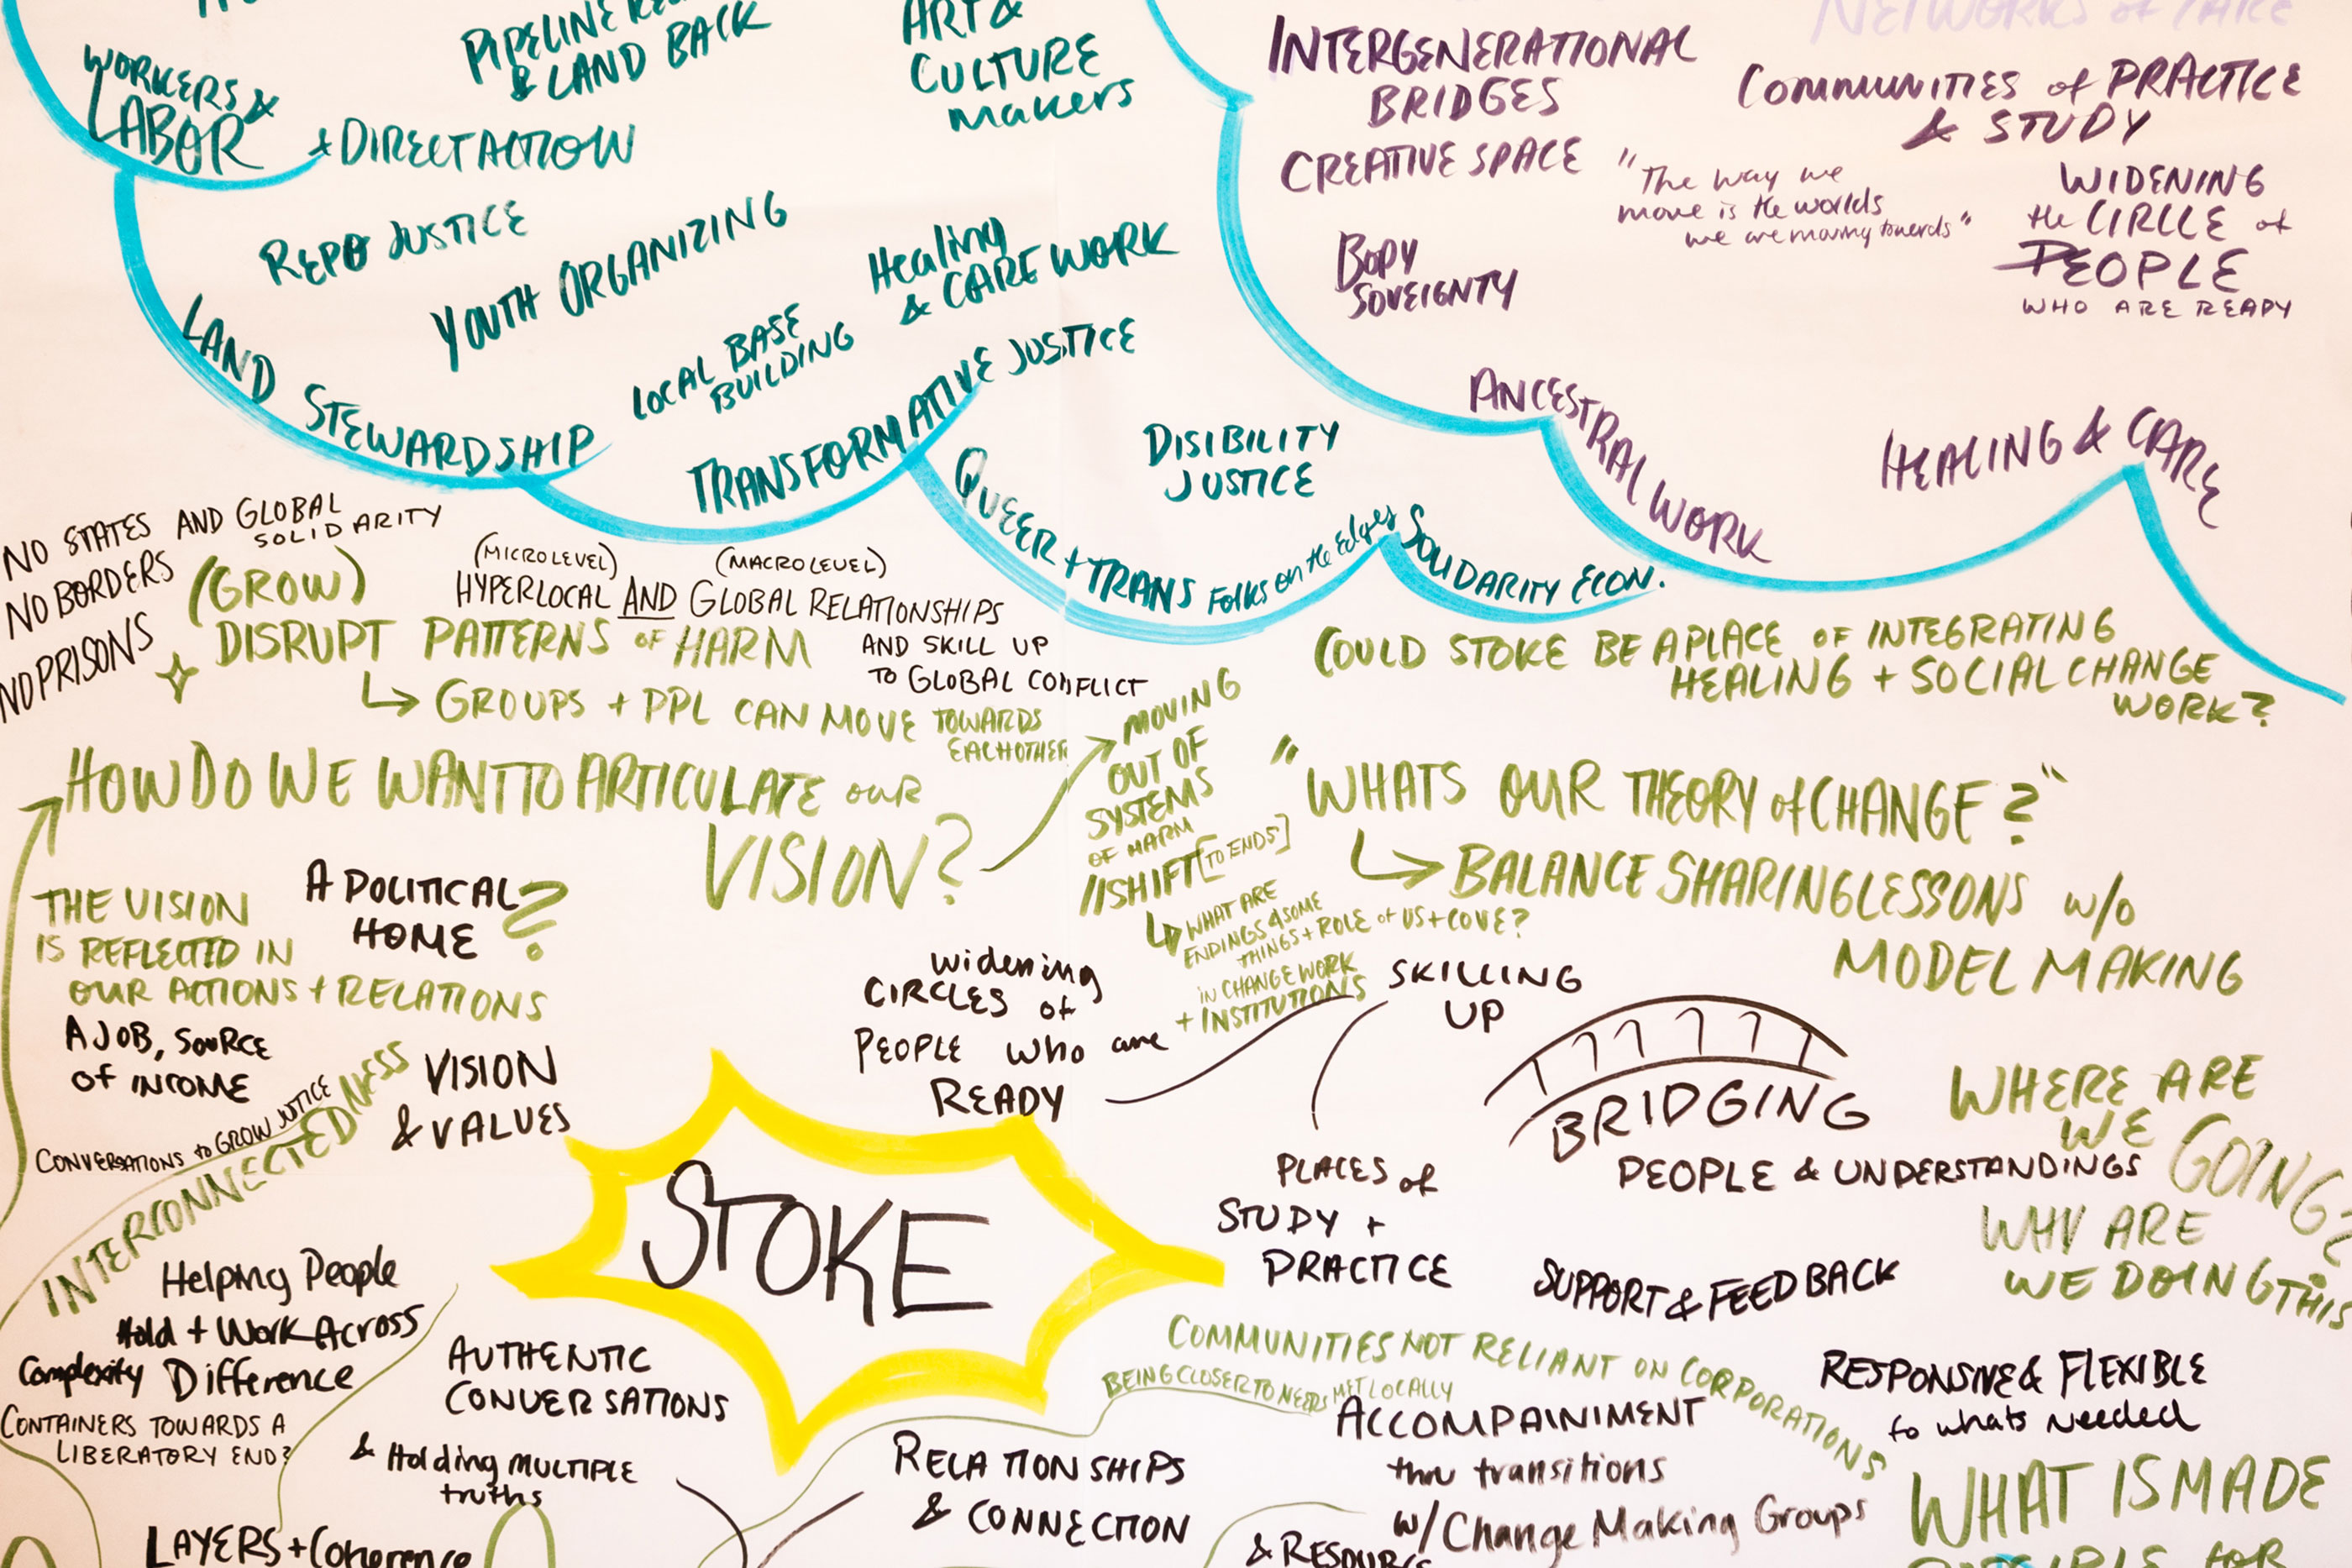 WORKERS &
LABOR
PIPELINE
& LAND BACK
+ DIRECT ACTION
ART &
CULTURE
makers
REPO JUSTICE
YOUTH ORGANIZING
Healing
& CARE WORK
LOCAL BASE
BUILDING
LAND STEWARDSHIP
TRANSFORMATIVE JUSTICE
DISIBILITY
JUSTICE
QUEER + TRANS Folks on the Edges
SOLIDARITY ECON.
NETWORKS of CARE
INTERGENERATIONAL
BRIDGES
COMMUNITIES of PRACTICE
& STUDY
CREATIVE SPACE
"The way we
move is the worlds
we are moving towards"
WIDENING
the CIRCLE of
PEOPLE
WHO ARE READY
BODY
SOVEIGNTY
ANCESTRAL WORK
HEALING & CARE
NO STATES AND GLOBAL
SOLIDARITY
NO BORDERS
NO PRISONS
(GROW)
DISRUPT PATTERNS of HARM
GROUPS + PPL CAN MOVE TOWARDS
EACHOTHER
(MICRO LEVEL) (MACRO LEVEL)
HYPERLOCAL AND GLOBAL RELATIONSHIPS
AND SKILL UP
TO GLOBAL CONFLICT
COULD STOKE BE A PLACE OF INTEGRATING
HEALING + SOCIAL CHANGE
WORK?
HOW DO WE WANT TO ARTICULATE our
VISION?
MOVING
OUT OF
SYSTEMS
OF HARM
//SHIFT [TO ENDS]
WHAT ARE
ENDINGS & SOME
THINGS + ROLE of US + COVE?
IN CHANGE WORK
+ INSTITUTIONS
"WHATS OUR THEORY of CHANGE?"
BALANCE SHARING LESSONS w/o
MODEL MAKING
THE VISION
IS REFLECTED IN
OUR ACTIONS + RELATIONS
A POLITICAL
HOME ?
A JOB, SOURCE
OF INCOME
VISION
& VALUES
CONVERSATIONS to GROW JUSTICE
INTERCONNECTEDNESS
widening
CIRCLES of
PEOPLE who are
READY
SKILLING
UP
BRIDGING
PEOPLE & UNDERSTANDINGS
WHERE ARE
WE GOING?
WHY ARE
WE DOING THIS
STOKE
PLACES of
STUDY +
PRACTICE
SUPPORT & FEEDBACK
Helping People
Hold + Work Across
Complexity Difference
CONTAINERS TOWARDS A
LIBERATORY END?
AUTHENTIC
CONVERSATIONS
& Holding MULTIPLE
truths
COMMUNITIES NOT RELIANT ON CORPORATIONS
BEING CLOSER TO NEEDS MET LOCALLY
RESPONSIVE & FLEXIBLE
to whats needed
ACCOMPAINIMENT
thru transitions
w/ Change Making Groups
RELATIONSHIPS
& CONNECTION
LAYERS + Coherence
WHAT IS MADE